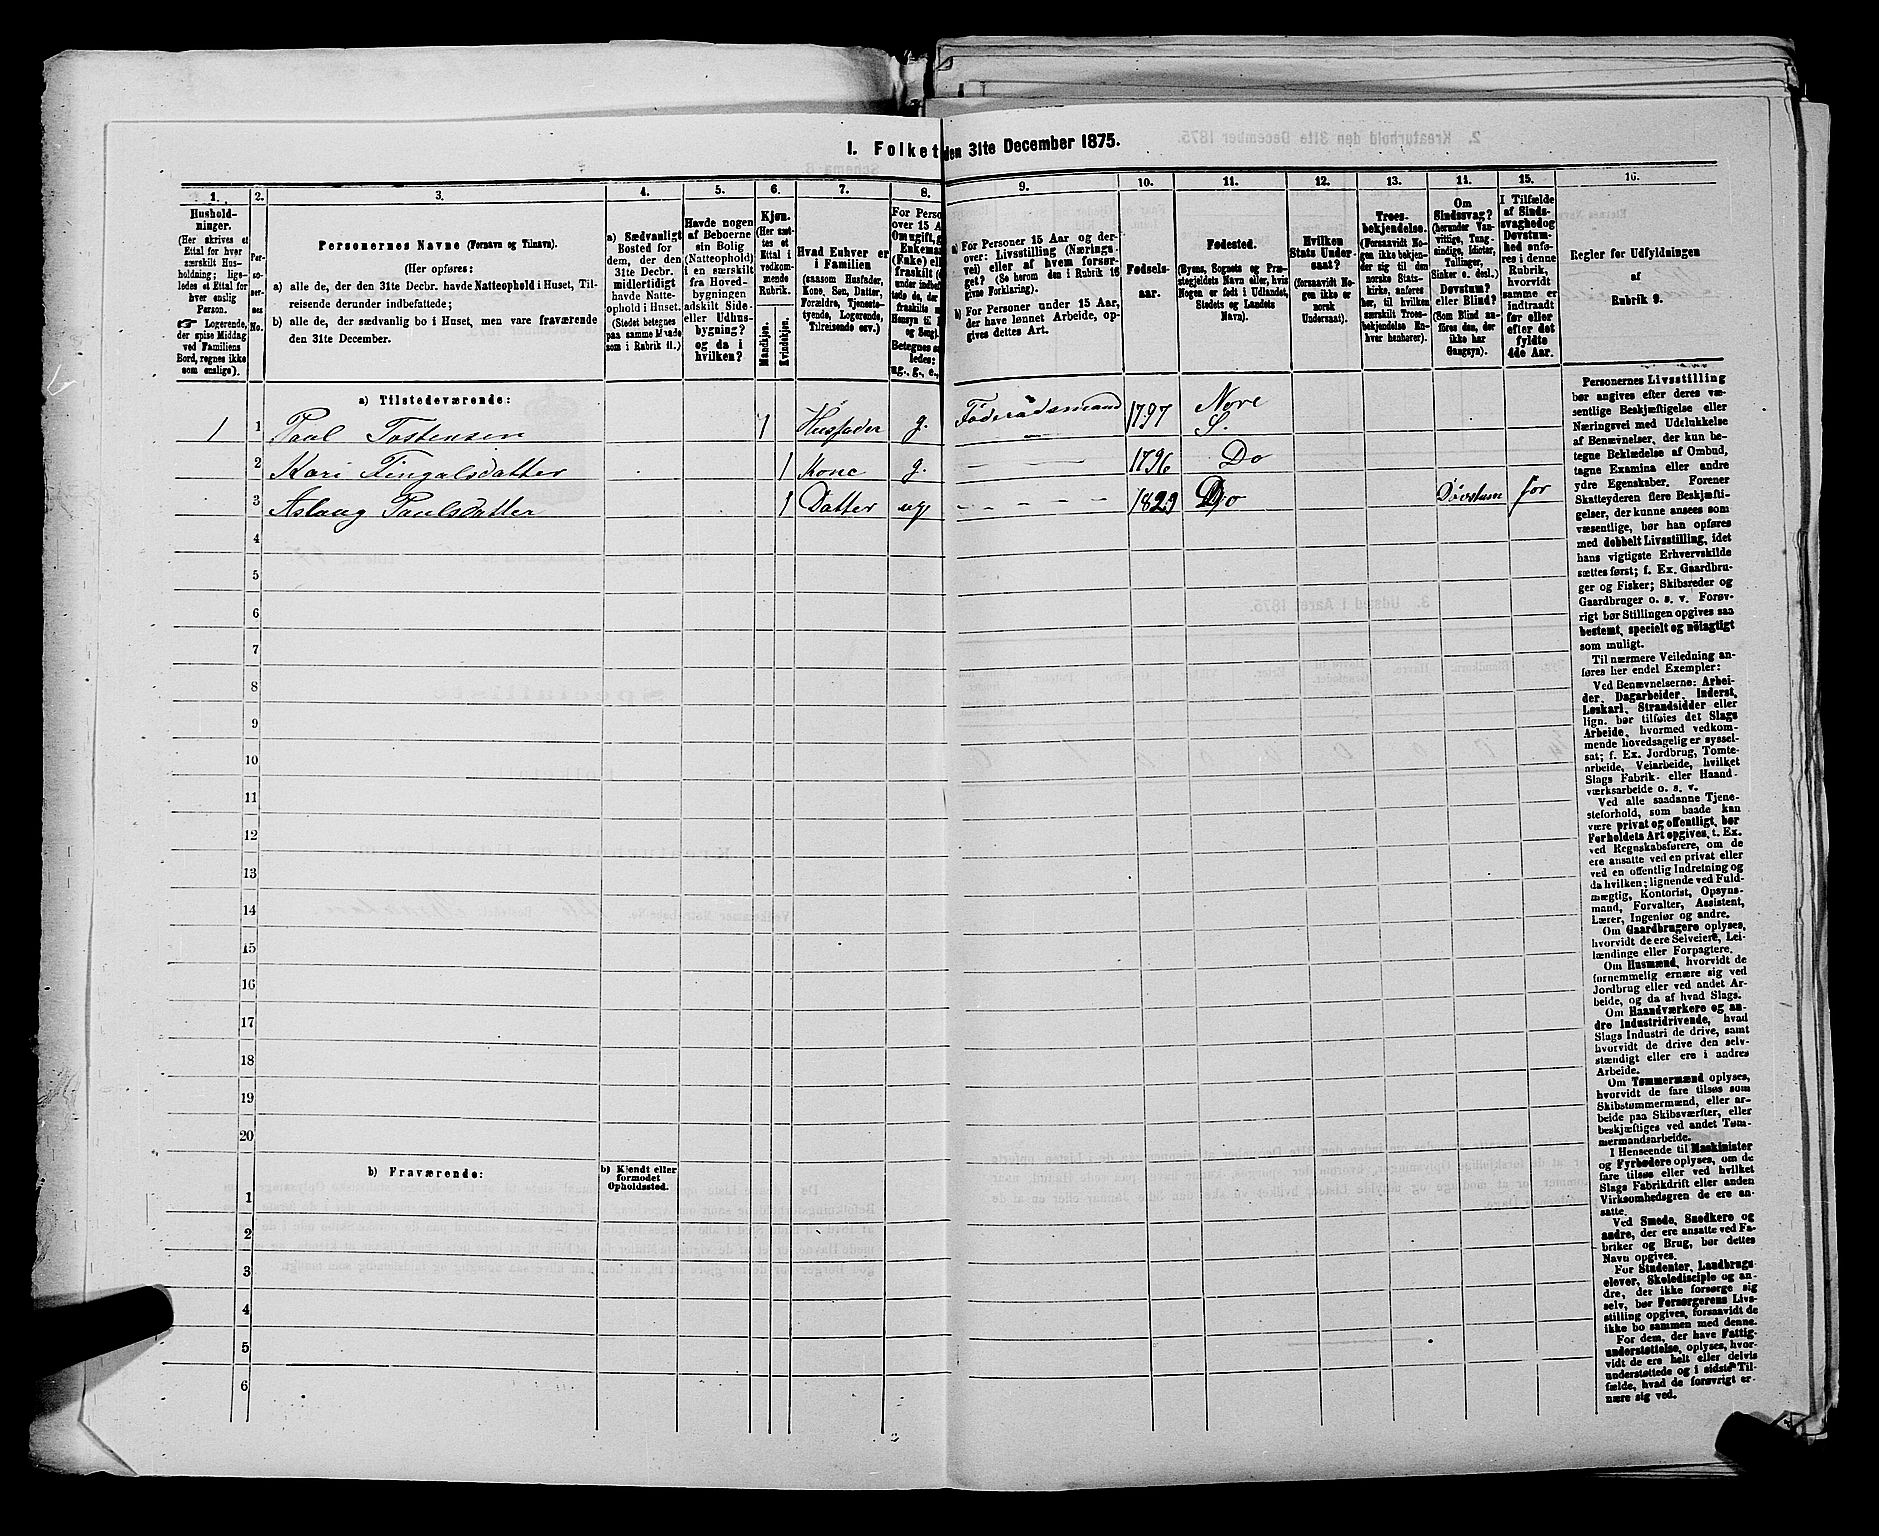 I. Folket den 31te December 1875.
1. 2. 3. 4. 5. 6. 7. 8. 9. 10. 11. 12. 13. 14. 15. 16.
Hushold-
ninger.
(Her skrives et
Ettal for hver
særskilt Hus-
holdning; lige-
ledes et Ettal for
hver enslig
Person.
☞ Logerende,
der spise Middag
ved Familiens
Bord, regnes ikke
som enslige).
Per-
so-
ner-
nes
No.
Personernes Navne (Fornavn og Tilnavn).
(Her opføres:
a) alle de, der den 31te Decbr. havde Natteophold i Huset, Til-
reisende derunder indbefattede;
b) alle de, der sædvanlig bo i Huset, men vare fraværende
den 31te December.
a) Sædvanligt
Bosted for
dem, der den
31te Decbr.
midlertidigt
havde Natte-
ophold i Huset.
(Stedet betegnes
paa samme Maade
som i Rubrik 11.)
Havde nogen
af Beboerne
sin Bolig
(Natteophold)
i en særskilt
fra Hoved-
bygningen
adskilt Side-
eller Udhus-
bygning?
og da i
hvilken?
Kjøn.
(Her sæt-
tes et
Ettal i
vedkom-
mende
Rubrik.
Mandkjøn.
Kvindekjøn.
Hvad Enhver er
i Familien
(saasom Husfader,
Kone, Søn, Datter,
Forældre, Tjeneste-
tyende, Logerende,
Tilreisende osv.)
For Perso
over 15 A
Om ugift, g
Enkema
(Enke) ell
fraskilt (
under indbe
tede de, der
fraskilte m
Hensyn til
og Seng).
Betegnes saa
ledes:
ug., g., e.,
a) For Personer 15 Aar og der-
over: Livsstilling (Nærings-
vei) eller af hvem forsør-
get? (Se herom den i Rubrik 16
givne Forklaring).
b) For Personer under 15 Aar,
der have lønnet Arbeide, op-
gives dettes Art.
Fødsels-
aar.
Fødested.
(Byens, Sognets og Præ-
stegjeldets Navn eller, hvis
Nogen er født i Udlandet,
Stedets og Landets
Navn).
Hvilken
Stats Under-
saat?
(forsaavidt No-
gen ikke er
norsk
Undersaat).
Troes-
bekjendelse.
(Forsaavidt No-
gen ikke bekjen-
der sig til den
norske Stats-
kirke, anføres
her, til hvilken
særskilt Troes-
bekjendelse En-
hver henhører).
Om
Sindssvag?
(herunder Van-
vittige, Tung-
sindige, Idioter,
Tullinger,
Sinker o. desl.)
Døvstum?
eller Blind?
(Som Blind an-
føres den, der
ikke har
Gangsyn).
I Tilfælde
af Sinds-
svaghed og
Døvstum-
hed anfø-
res i denne
Rubrik,
hvorvidt
samme er
indtraadt
før eller
efter det
fyldte
4de Aar.
Regler før Udfyldningen
af
Rubrik 9.
a) Tilstedeværende:
1 1 Paul Tostensen 1 Husfader g. Föderaadsmand 1797 Nore S.
2 Kari Fingalsdatter 1 Kone g. — — — 1796 Do
3 Aslaug Paulsdatter 1 Datter ug. - - - - 1829 Do Døvstum før
4
5
6
7
8
9
10
11
12
13
14
15
16
17
18
19
20
b) Fraværende:
b) Kjendt eller
formodet
Opholdssted.
1
2
3
4
5
6
Personernes Livsstilling
bør angives efter deres væ-
sentlige Beskjæftigelse eller
Næringsvei med Udelukkelse
af Benævnelser, der kun be-
tegne Beklædelse af Ombud,
tagne Examina eller andre
ydre Egenskaber. Forener
Skatteyderen flere Beskjæfti-
gelser, der kunne ansees som
væsentlige, bør han opføres
med dobbelt Livsstilling, idet
hans vigtigste Erhvervskilde
sættes først; f. Ex. Gaardbru-
ger og Fisker; Skibsreder og
Gaardbruger o. s. v. Forøv-
rigt bør Stillingen opgives saa
bestemt, specielt og nöiagtigt
som muligt.
Til nærmere Veiledning an-
føres her endel Exempler:
Ved Benævnelserne: Arbei-
der, Dagarbeider, Inderst,
Løskarl, Strandsidder eller
lign. bør tilføies det Slags
Arbeide, hvormed vedkom-
mende hovedsagelig er syssel-
sat; f. Ex. Jordbrug, Tomte-
arbeide, Veiarbeide, hvilket
Slags Fabrik- eller Haand-
værksarbeide o. s. v.
Ved alle saadanne Tjene-
steforhold, som baade kan
være privat og offentligt, bør
Forholdets Art opgives, t. Ex.
ved Regnskabsførere, om de
ere ansatte ved en privat eller
ved en offentlig Indretning og
da hvilken; lignende ved Fuld-
mægtig, Kontorist, Opsyns-
mand, Forvalter, Assistent,
Lærer, Ingeniør og andre.
Om Gaardbrugere oplyses,
hvorvidt de ere Selveiere, Lei-
lændinge eller Forpagtere.
Om Husmænd, hvorvidt de
fornemmelig ernære sig ved
Jordbrug eller ved andet Ar-
beide, og da af hvad Slags.
Om Haandværkere og an-
dre Industridrivende, hvad
Slags Industri de drive, samt
hvorvidt de drive den selv-
stændigt eller ere i andres
Arbeide.
Om Tømmermænd oplyses,
hvorvidt de fare tilsøs som
Skibstømmermænd, eller ar-
beide paa Skibsværfter, eller
beskjæftiges ved andet Tøm-
mermandsarbeide.
I Henseende til Maskinister
og Fyrbødere oplyses, om de
fare tilsøs eller ved hvilket
Slags Fabrikdrift eller anden
Virksomhedsgren de ere an-
satte.
Ved Smede, Snedkere og
andre, der ere ansatte ved Fa-
briker og Brug, bør dettes
Navn opgives.
For Studenter, Landbrugs-
elever, Skoledisciple og an-
dre, der ikke forsørge sig
selv, bør Forsørgerens Livs-
stilling opgives, forsaavidt de
ikke bo sammen med denne.
For dem, der have Fattig-
understøttelse, oplyses, hvor-
vidt de ere helt eller delvis
understøttede og i sidste Til-
fælde, hvad de forøvrigt er-
nære sig ved.